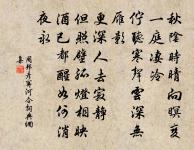 秋陰時晴向暝變
一庭淒冷
佇聽寒聲雲深無
雁影
更深人去寂靜
但照壁孤燈相映
酒已都醒如何消
夜永
周邦彥關河令詞